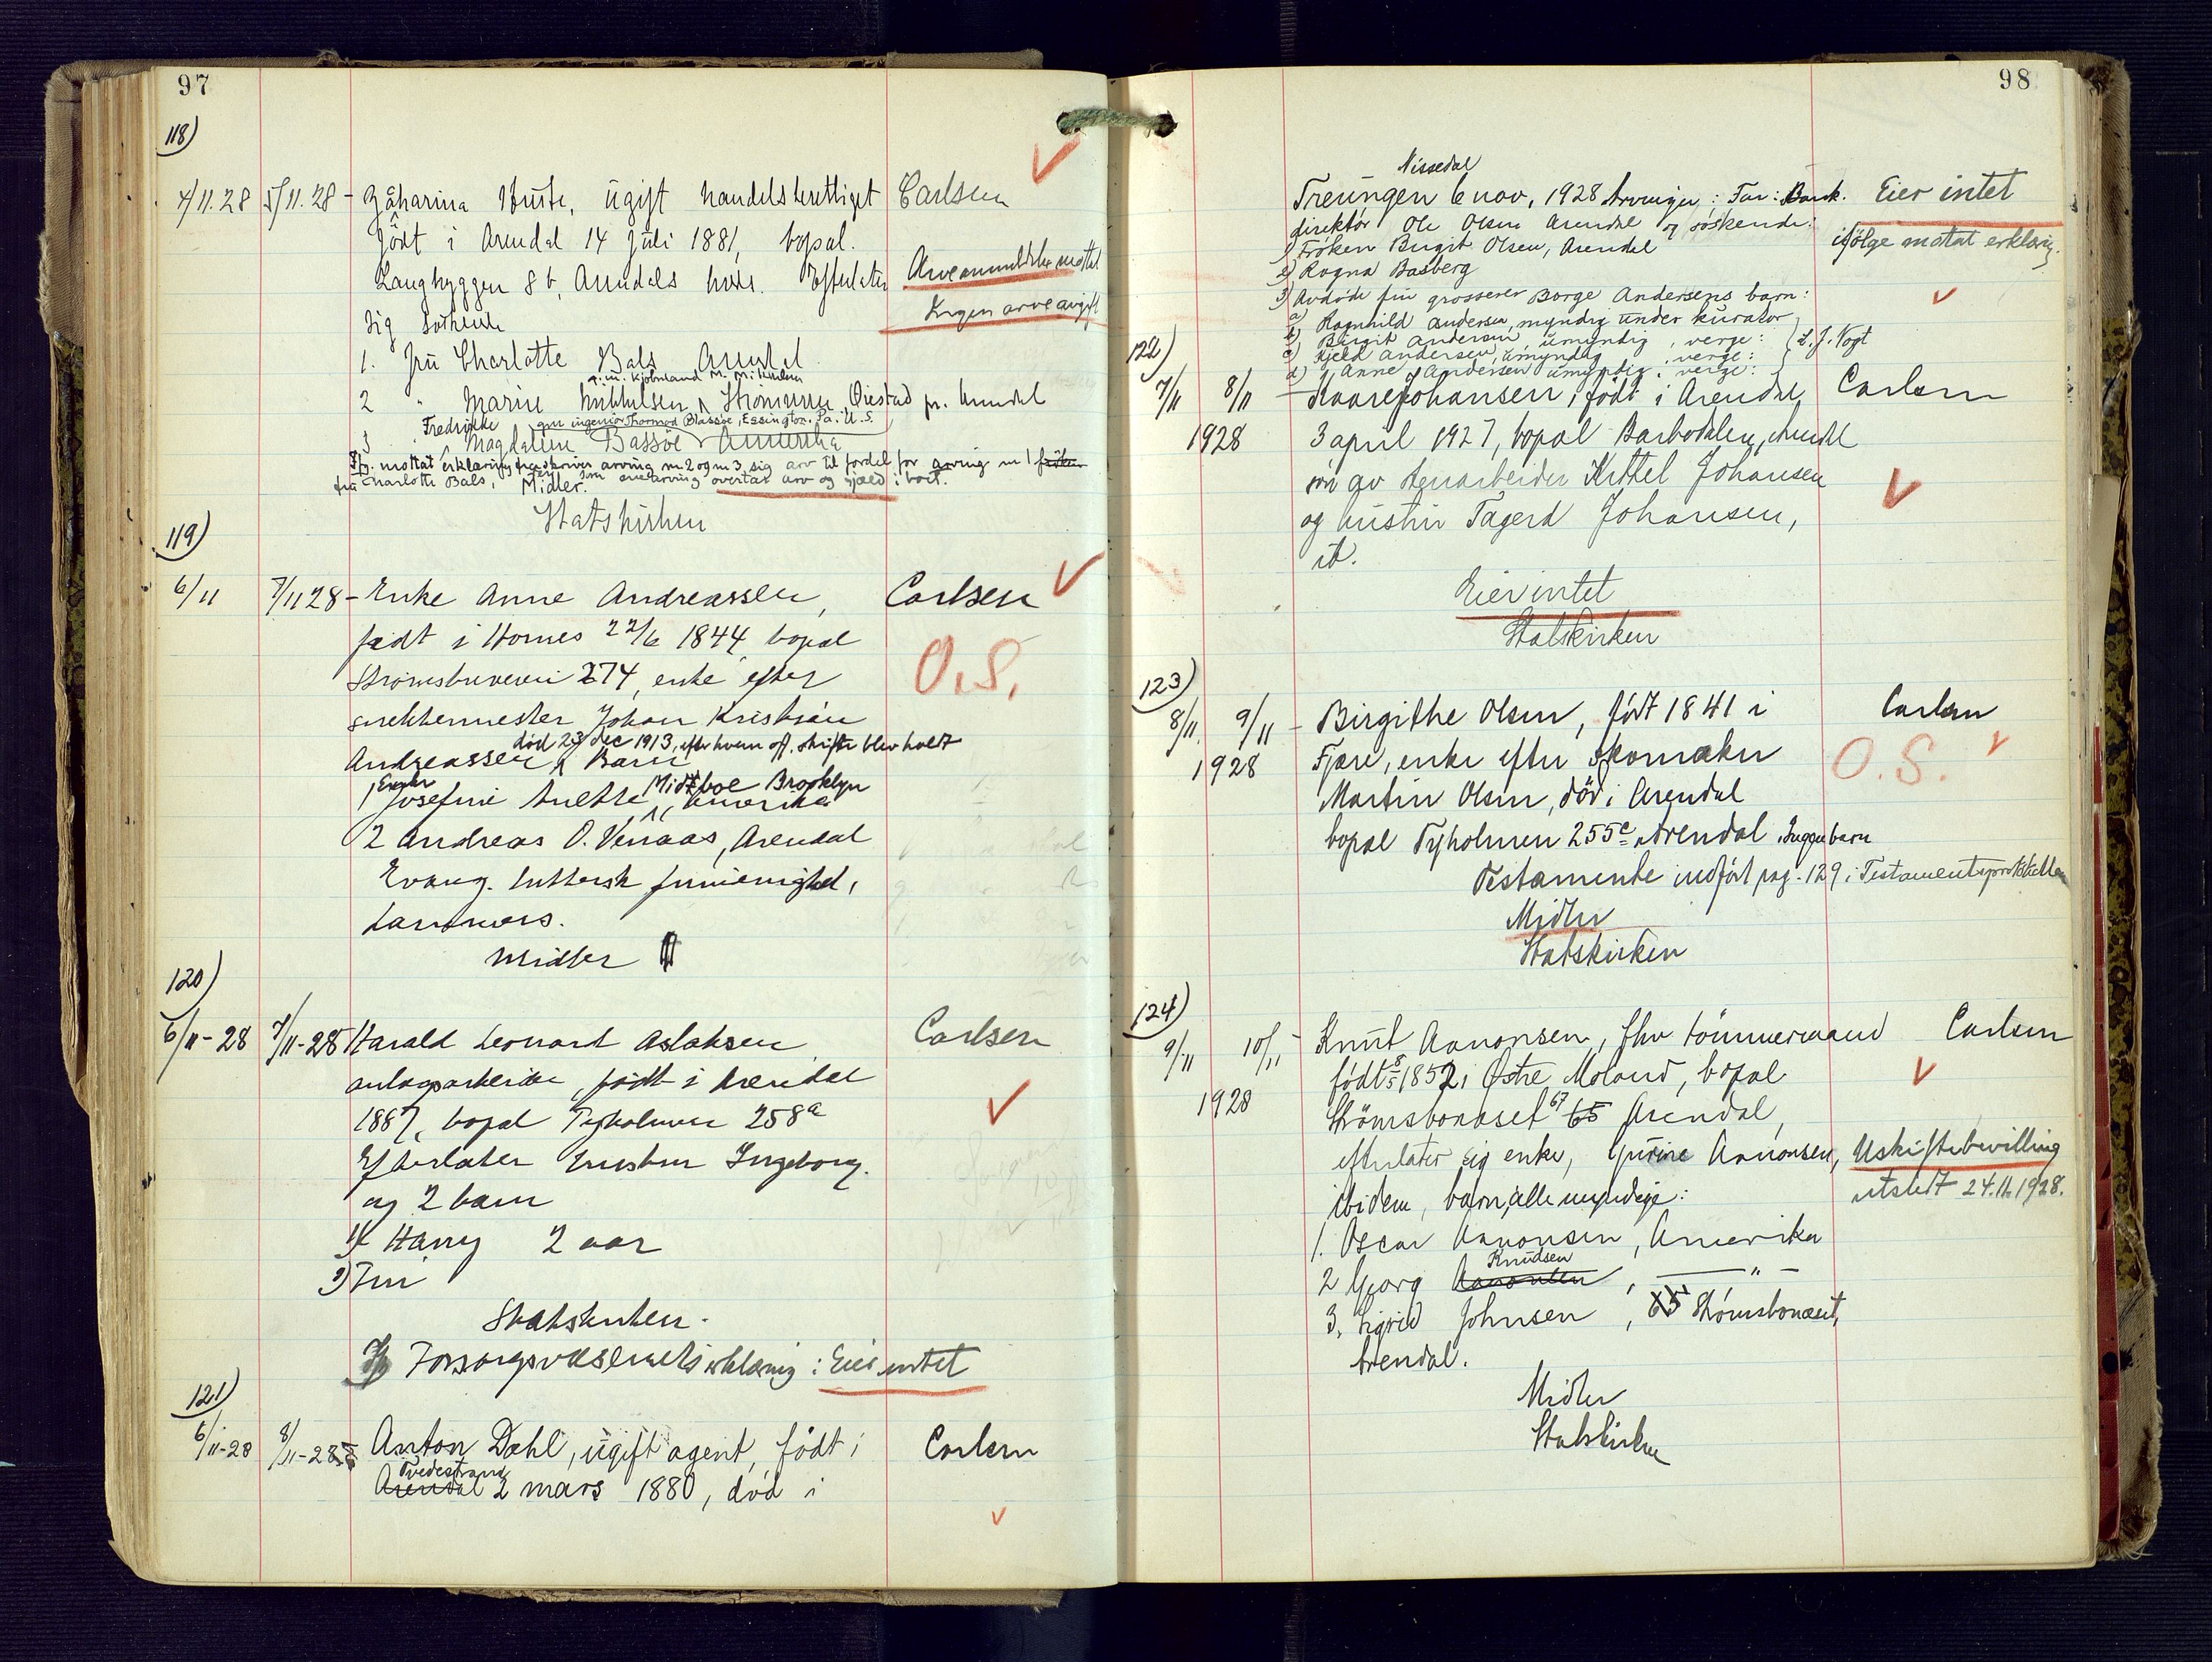 97
118)
4/11.28 5/11.28 - Catharina Huste, ugift handelsberettiget Carlsen
født i Arendal 14 juli 1881, bopæl.
Langbryggen 8 b, Arendals hvis. Efterlater Arveanmeldelse mottat
sig søskende Ingen arveavgift
1. fru Charlotte Bals Arendal
g.m. kjøbmand M. Mikkelsen
2 " Marie Mikkelsen, Strømmen Øiestad pr. Arendal
Fredrikke gm ingeniør Thormod Blassøe, Essington. Pa. U.S.
3 " Magdalene Bassøe Amerika
Ifg. mottat erklæring fraskriver arving nr 2 og nr 3 sig arv til fordel for arving nr 1
fru Charlotte Bals, som enearving overtar arv og gjæld i boet.
Midler.
Statskirken
119)
6/11 7/11 28 - Enke Anne Andreassen, Carlsen
født i Hornes 22/6 1844, bopæl
Strømsbuveien 274, enke efter O.S.
snekkermester Johan Kristian
død 23 dec 1913, efter hvem off. skifte blev holdt
Andreassen, Barn
1 Josefine Anette Midtboe Brooklyn Amerika
2 Andreas O. Venaas, Arendal
Evang. luthersk frimenighet,
Lammers.
Midler
120)
6/11-28 7/11-28 Harald Leonard Aslaksen Carlsen
anlægsarbeider, født i Arendal
1887, bopæl Tyholmen 258a
Efterlater hustru Ingeborg.
og 2 barn
1) Harry 2 aar
2)
Statskirken.
Ifg Forsorgsvæsenets erklæring: Eier intet
121)
6/11-28 8/11-28 - Anton Dahl, ugift agent, født i Carlsen
Tvedestrand
Arendal 2 mars 1880, død i
98
Nissedal
Treungen 6 nov, 1928 Arvinger: Far: Bank- Eier intet
direktør Ole Olsen Arendal og søskende: ifølge mottat erklæring.
1) Frøken Birgit Olsen, Arendal
2) Ragna Basberg
3) Avdøde fru grosserer Borge Andersens barn:
a) Ragnhild Andersen, myndig under kurator
b) Birgit Andersen, umyndig, verge: L.J. Vogt
c) Kjeld Andersen, umyndig, verge:
d) Anne Andersen umyndig, verge:
122)
7/11 8/11 - Kaare Johansen, født i Arendal Carlsen
1928 3 april 1927, bopæl Barbodalen, Arendal
søn av stenarbeider Kittel Johansen
og hustru Tagerd Johansen,
ib.
Eier intet
Statskirken
123)
8/11 9/11 - Birgithe Olsen, født 1841 i Carlsen
1928 Fjære, enke efter Skomaker O.S.
Martin Olsen, død i Arendal
bopæl Tyholmen 255c Arendal. Ingen barn
Testamente indført pag. 129 i Testamentsprotokollen
Midler
Statskirken
124)
9/11 10/11 - Knut Aanonsen, fhv tømmermand Carlsen
født 1852 i Østre Moland, bopæl
1928 Strømsboaaset 67 65 Arendal,
efterlater sig enke, Gurine Aanonsen, Uskiftebevilling
ibidem, barn, alle myndige: utstedt 24.11.1928.
1. Oscar Aanonsen, Amerika
Knudsen
2 Georg Aanonsen, — " —
3. Sigrid Johnsen, 65 Strømsboaaset,
Arendal.
Midler
Statskirken